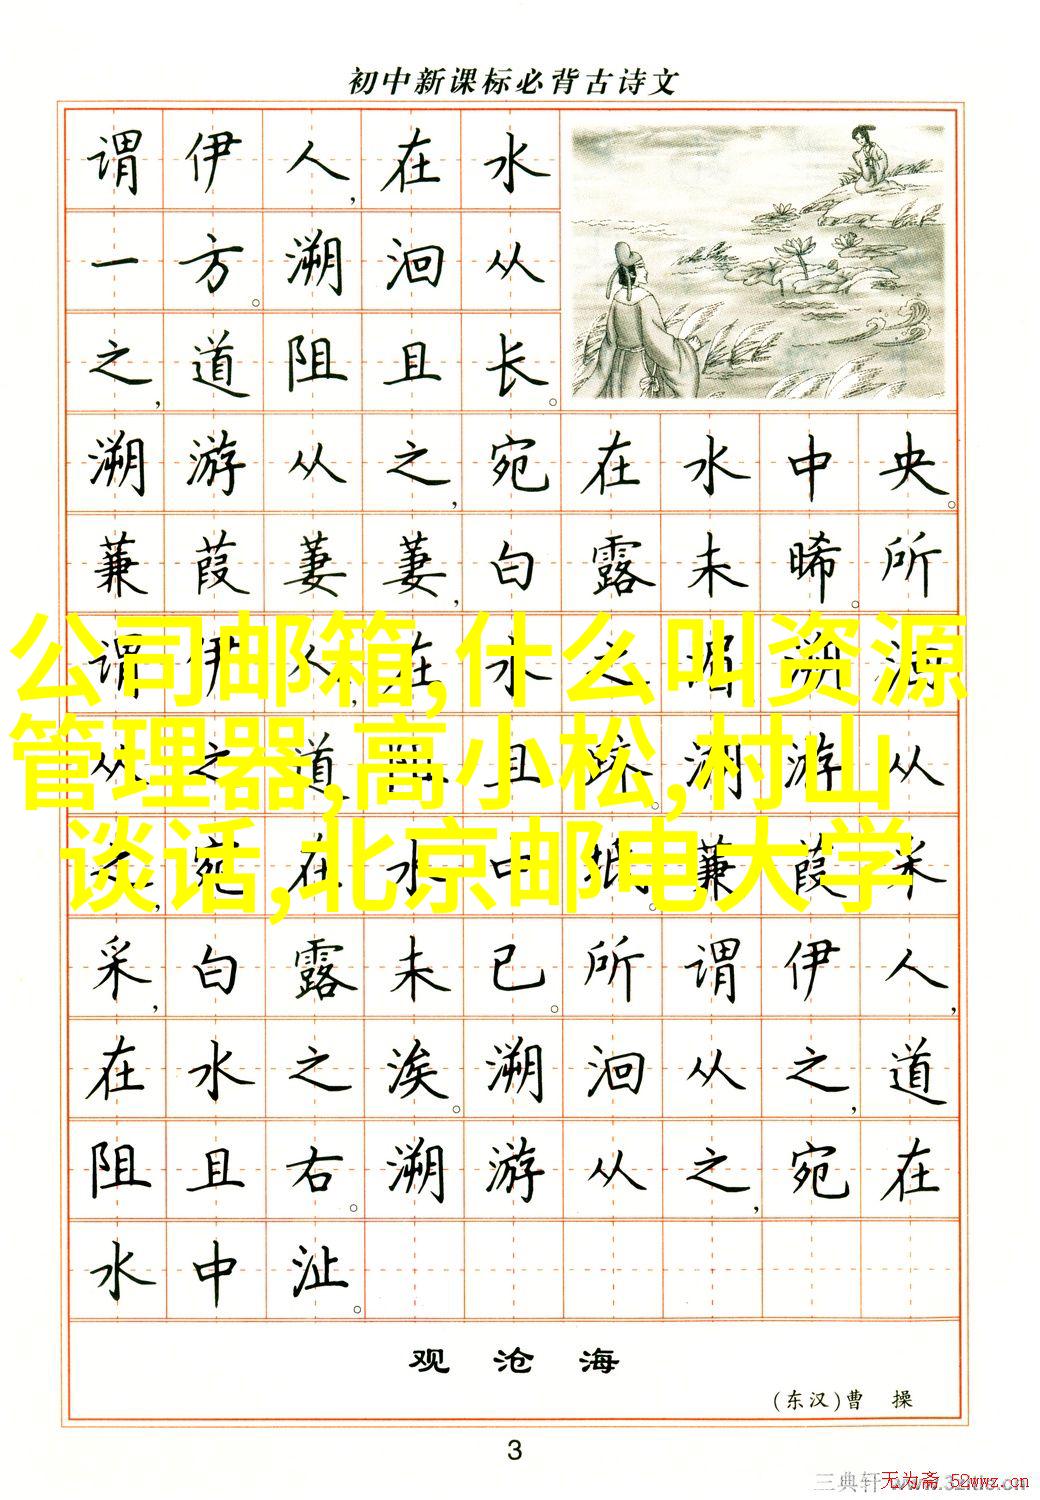 初中新课标必背古诗文
谓伊人,在水
一方。溯洄从
之,道阻且长。
溯游从之,宛在水中央。
蒹葭萋萋,白露未晞。所
谓伊人,在水之湄。溯洄
从之,道阻且跻。溯游从
之,宛在水中坻。蒹葭采
采,白露未已。所谓伊人,
在水之涘。溯洄从之,道
阻且右。溯游从之,宛在
水中沚。
公司邮箱,什么叫资源
管理器,高小松,村山
谈话,北京邮电大学
观沧海
(东汉)曹操
3
三典轩
无为斋 52wwz.cn